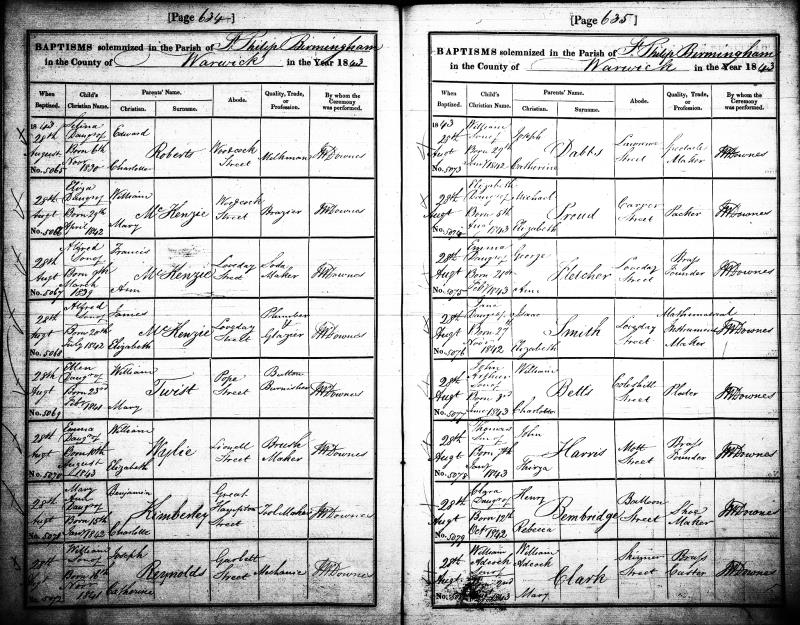 [Page 634]
BAPTISMS solemnized in the Parish of St. Philip Birmingham
in the County of Warwick in the Year 1843
When Baptized. Child's Christian Name. Parents' Name. Christian. Surname. Abode. Quality, Trade, or Profession. By whom the Ceremony was performed.
1843
28th
August
No. 5065
Selina
Daugr of
Born 6th
Novr
1830
Edward
Charlotte
Roberts
Woodcock
Street
Milkman
JWDownes
28th
Augt
No. 5066
Eliza
Daugr of
Born 29th
April 1842
William
Mary
McKenzie
Woodcock
Street
Brazier
JWDownes
28th
Augt
No. 5067
Alfred
Son of
March
1839
Francis
Ann
McKenzie
Loveday
Street
Soda
Maker
JWDownes
28th
Augt
No. 5068
Alfred
Son of
Born 20th
July 1842
James
Elizabeth
McKenzie
Loveday
Street
Plumber
&
Glazier
JWDownes
28th
Augt
No. 5069
Ellen
Daugr of
Born 23rd
Febr 1841
William
Mary
Twist
Pope
Street
Button
Burnisher
JWDownes
28th
Augt
No. 5070
Emma
Daugr of
Born 10th
August
1843
William
Elizabeth
Wylie
Lionell
Street
Brush
Maker
JWDownes
28th
Augt
No. 5071
Mary
Ann
Daugr of
Born 15th
1842
Benjamin
Charlotte
Kimberley
Great
Hampton
Street
Tool Maker
JWDownes
28th
Augt
No. 5072
William
Son of
Born 16th
1841
Joseph
Catherine
Reynolds
Garbett
Street
Mechanic
JWDownes
[Page 635]
BAPTISMS solemnized in the Parish of St. Philip Birmingham
in the County of Warwick in the Year 1843
When Baptized. Child's Christian Name. Parents' Name. Christian. Surname. Abode. Quality, Trade, or Profession. By whom the Ceremony was performed.
1843
28th
Augt
No. 5073
William
Son of
Born 29th
1842
Joseph
Catherine
Dabbs
Street
Maker
JWDownes
28th
Augt
No. 5074
Elizabeth
Daugr of
Born 5th
1843
Michael
Elizabeth
Proud
Street
Packer
JWDownes
28th
Augt
No. 5075
Emma
Daugr of
Born 21st
Feby 1843
George
Ann
Fletcher
Loveday
Street
Brass
Founder
JWDownes
28th
Augt
No. 5076
Jane
Daugr of
Born 27th
Novr
1842
Isaac
Elizabeth
Smith
Loveday
Street
Mathematical
Instrument
Maker
JWDownes
28th
Augt
No. 5077
John
Arthur
Son of
Born 3rd
June 1843
William
Charlotte
Betts
Coleshill
Street
Plater
JWDownes
28th
Augt
No. 5078
Thomas
Son of
Born 7th
1843
John
Thirza
Harris
Mott
Street
Brass
Founder
JWDownes
28th
Augt
No. 5079
Clara
Daugr of
Born 12th
Oct 1842
Henry
Rebecca
Bembridge
Street
Shoe
Maker
JWDownes
28th
Augt
William
Adcock
Son of
2nd
1843
William
Adcock
Mary
Clark
Skinner
Street
Brass
Caster
JWDownes